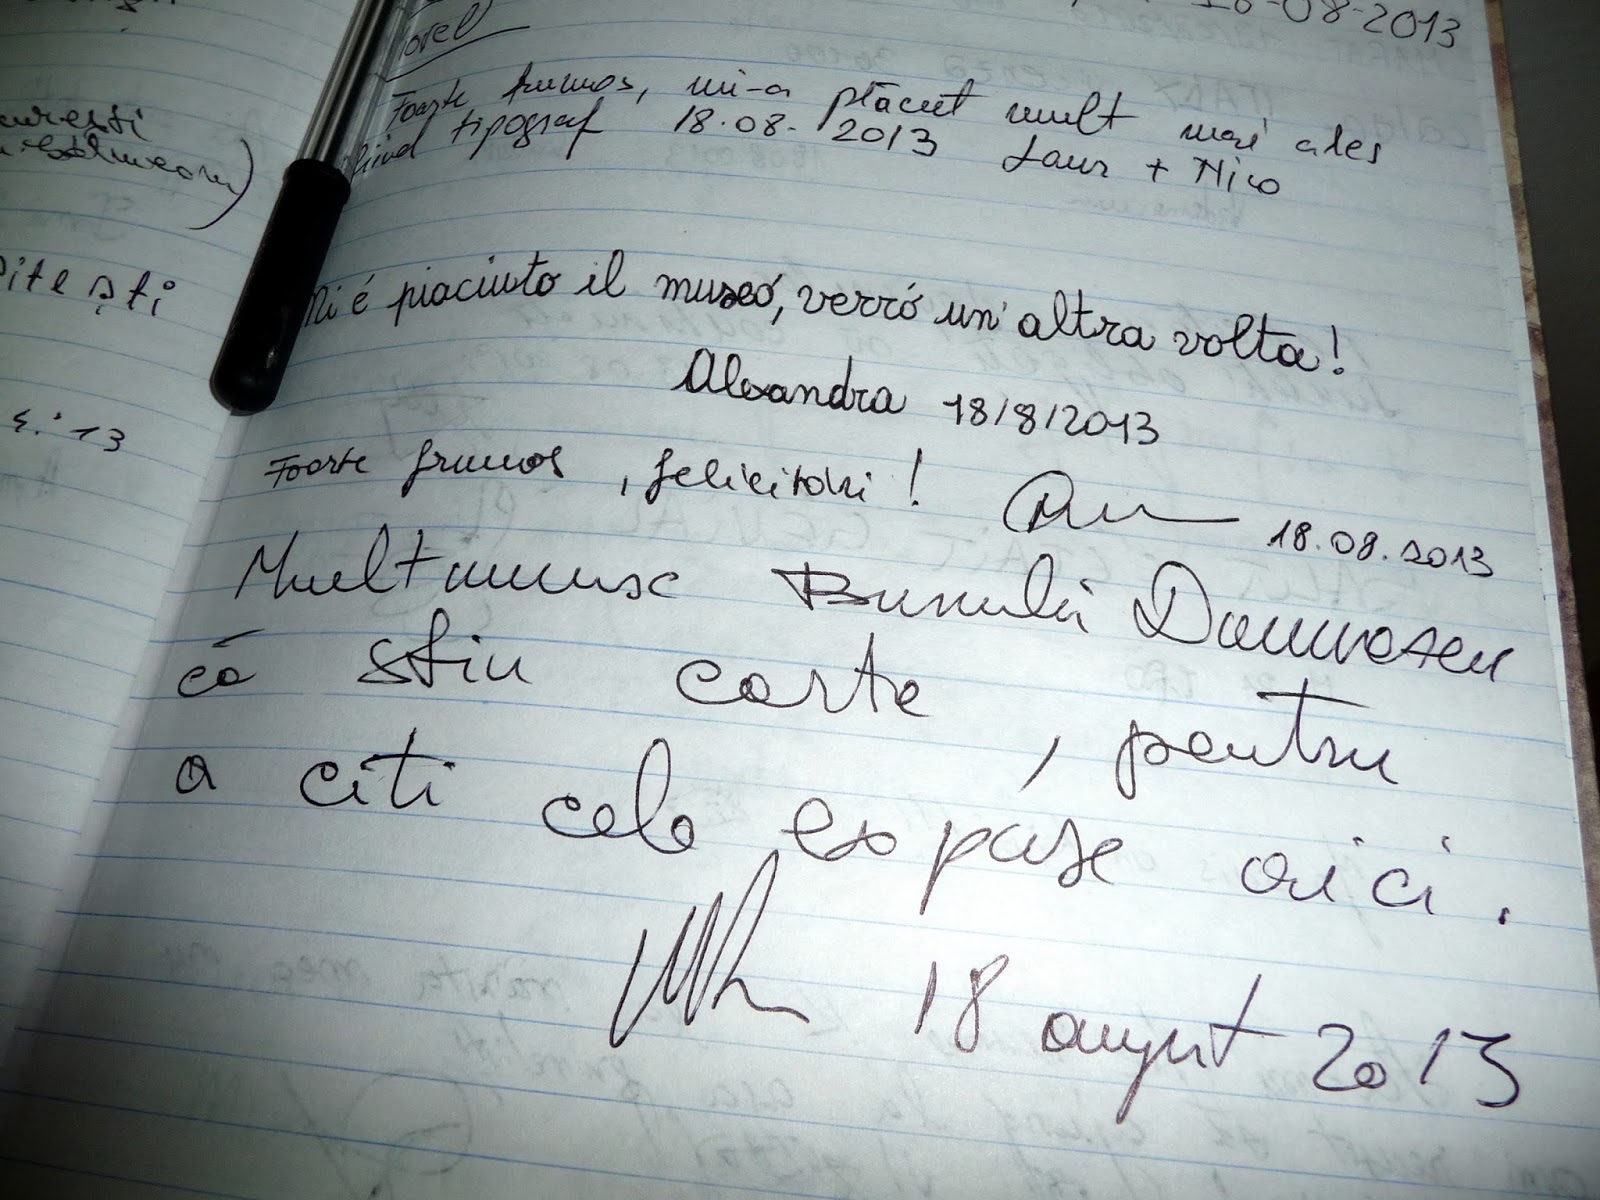 curesti
Pitești
18-08-2013
Foarte frumos, mi-a plăcut mult mai ales
fiind tipograf 18.08.2013 Laur + Nico
Mi é piaciuto il museó, verró un' altra volta!
Alexandra 18/8/2013
Foarte frumos, felicitări!
18.08.2013
Multumesc Bunului Dumnezeu
că stiu carte, pentru
a citi cele expuse aici.
18 august 2013